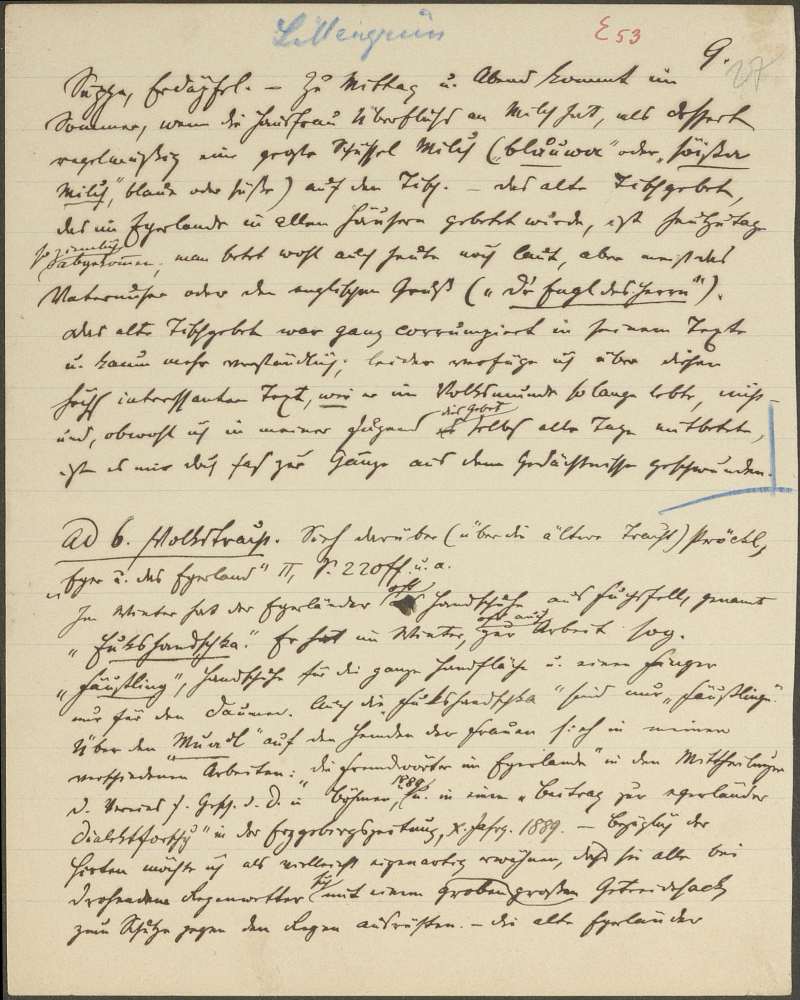 Lillengrün
E 53
9.
27
Suppe, Erdäpfel. – Zu Mittag u. Abend kommt im
Sommer, wenn die Hausfrau Überfluß an Milch hat, als Dessert
regelmäßig eine große Schüssel Milch („blauwa" oder „söißa
Milch", blaue oder süße) auf den Tisch. – Das alte Tischgebet,
das im Egerlande in allen Häusern gebetet wurde, ist heutzutage
so ziemlich
abgekommen; man betet wohl auch heute noch laut, aber meist das
Vaterunser oder den englischen Gruß („Dr Engl des Herrn").
Das alte Tischgebet war ganz corrumpiert in seinem Texte
u. kaum mehr verständlich; leider verfüge ich über diesen
höchst interessanten Text, wie er im Volksmunde so lange lebte, nicht
und, obwohl ich in meiner Jugend das Gebet selbst alle Tage mitbetete,
ist es mir doch fast zur Gänze aus dem Gedächtnisse geschwunden.
Ad 6. Volkstracht. Sieh darüber (über die ältere Tracht) Pröckl,
„Eger u. das Egerland" II, S. 220 ff. u. a.
Im Winter hat der Egerländer oft Handschuhe aus Fuchsfell, genannt
„Fukshandschka". Er hat im Winter, oft auch zur Arbeit sog.
„Fäustling", Handschuhe für die ganze Handfläche u. einen Finger
nur für den Daumen. Auch die „Fukshandschka" sind nur „Fäustlinge".
Über den „Muadl" auf den Hemden der Frauen sieh in meinen
verschiedenen Arbeiten: „die Fremdwörter im Egerlande" in den Mittheilungen
d. Vereines f. Gesch. d. D. in Böhmen, 1889 u. in einem „Beitrag zur egerländer
Dialektforschg" in der Erzgebirgszeitung, X. Jahrg. 1889. – Bezüglich der
Hirten möchte ich als vielleicht eigenartig erwähnen, daß sie alle bei
drohendem Regenwetter sich mit einem groben großen Getreidesack
zum Schutze gegen den Regen ausrüsten. – Die alte Egerländer